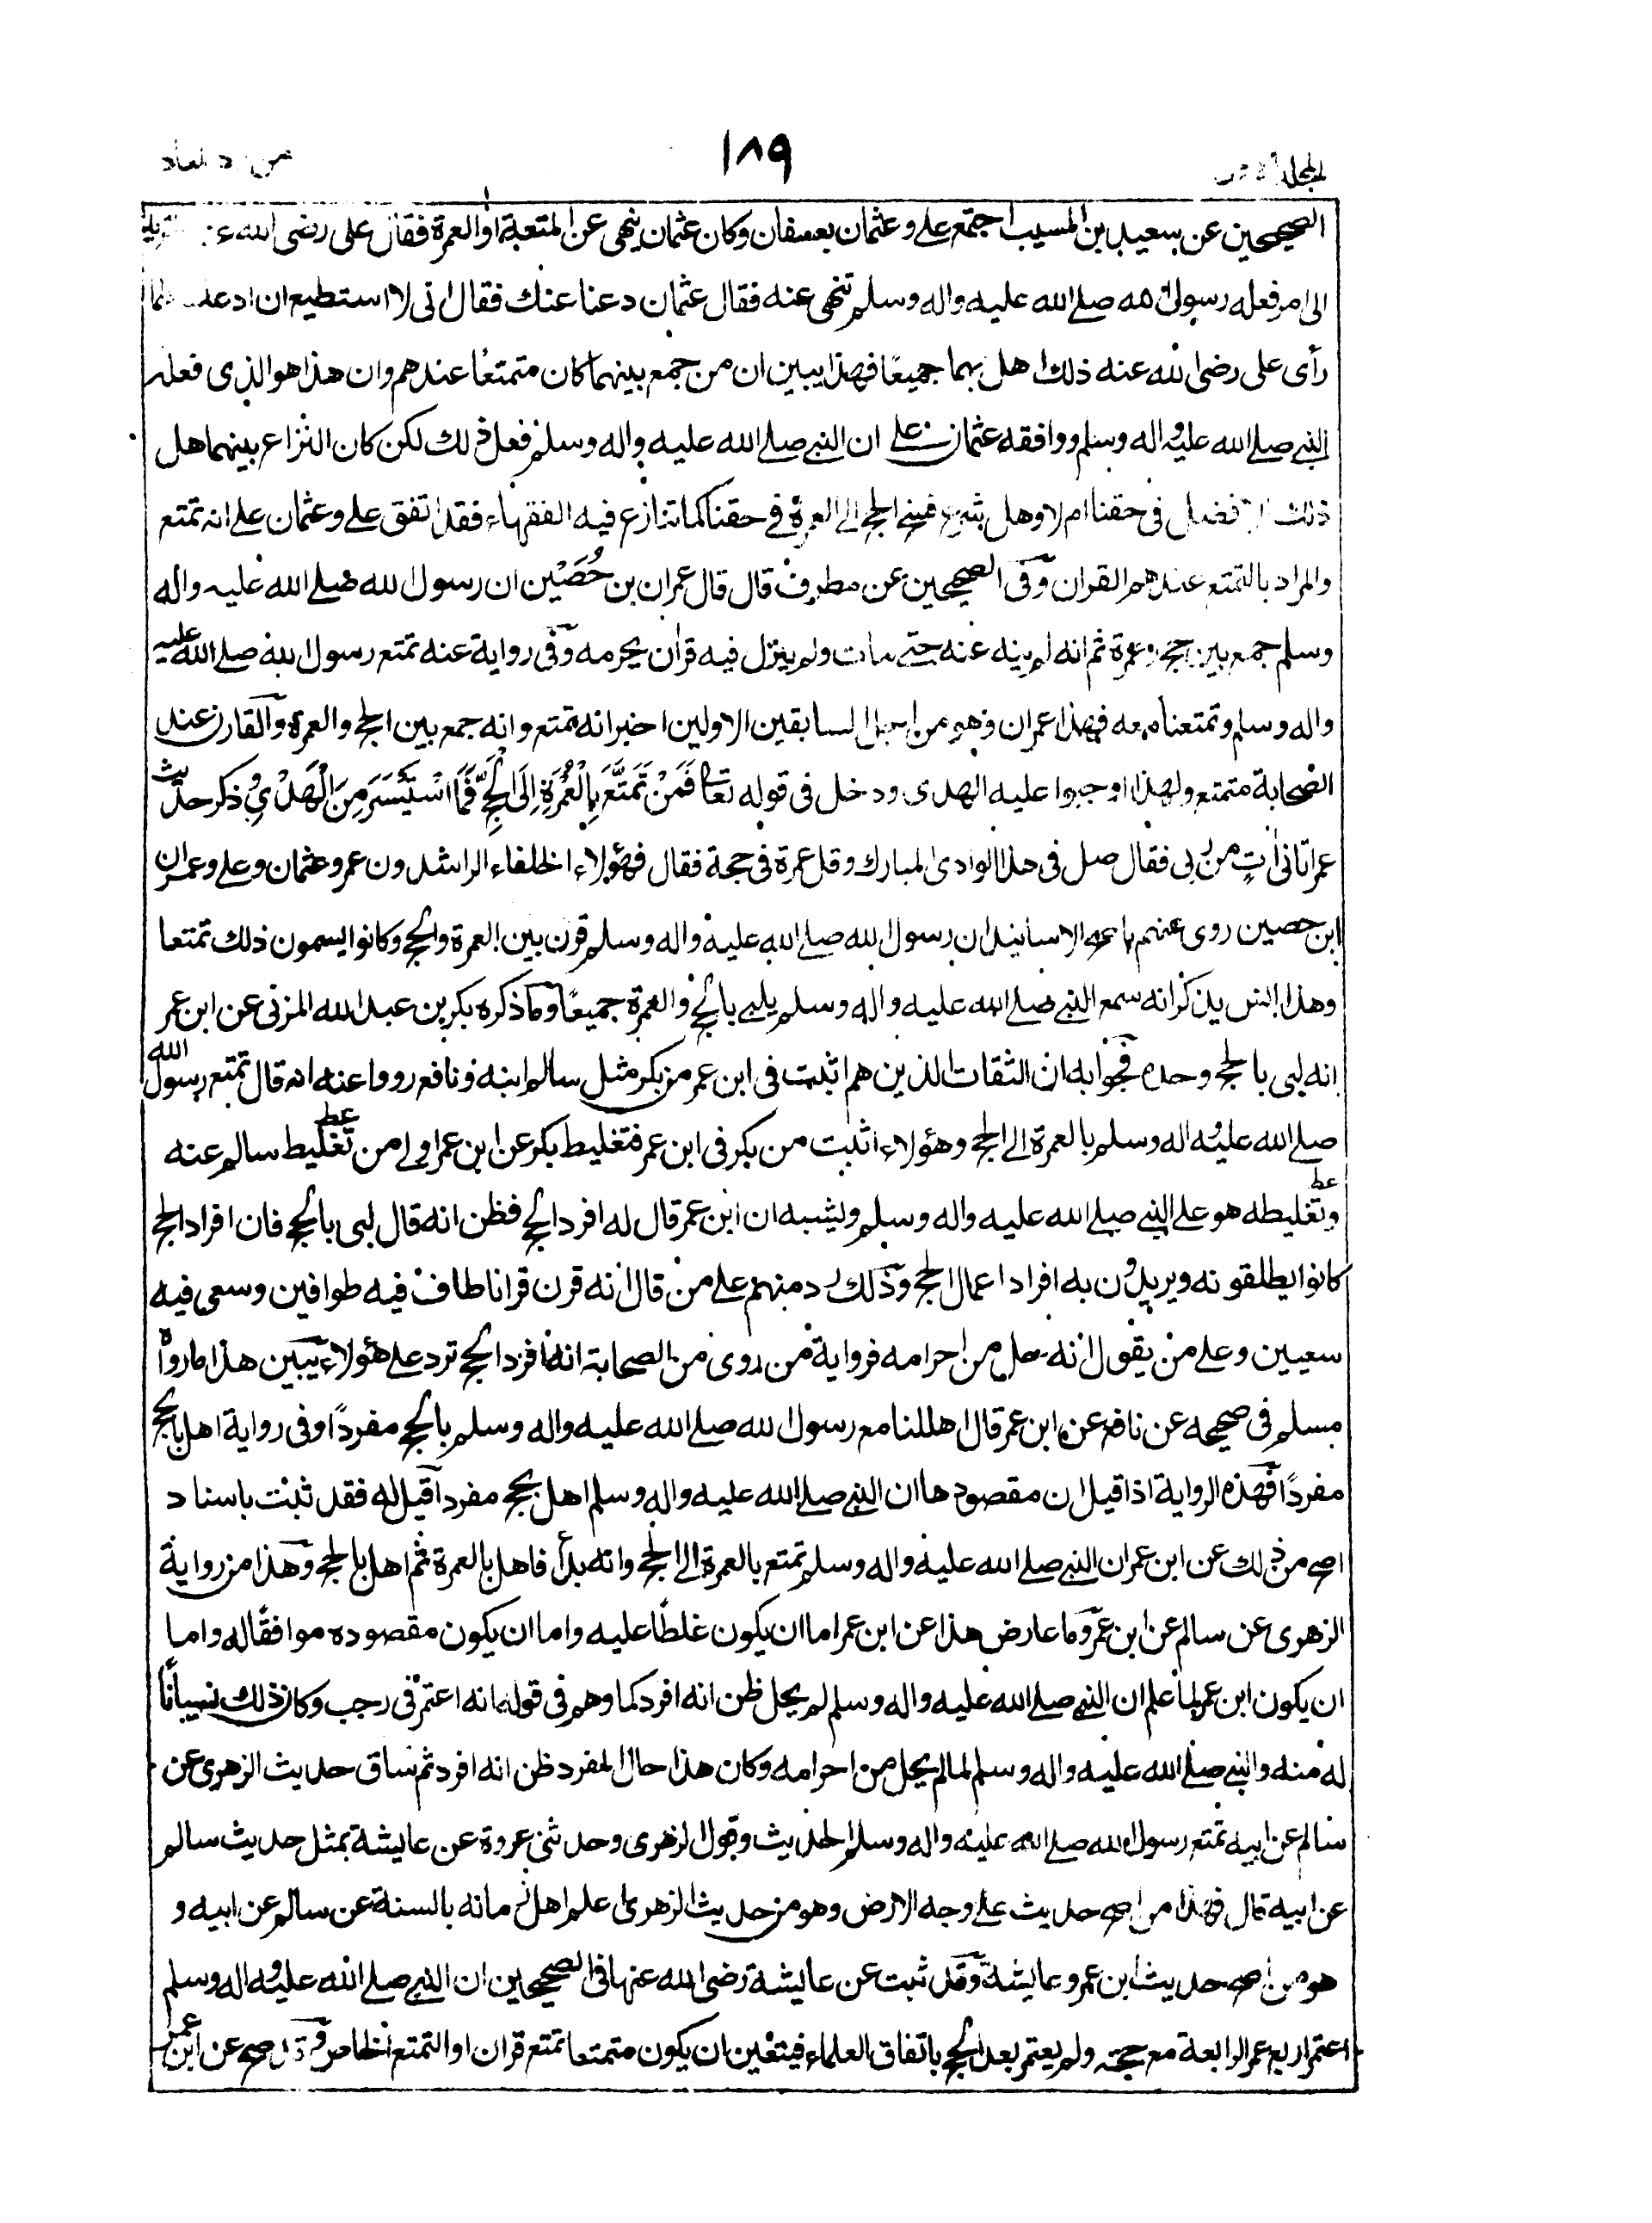 ١٨٩
الصحيحين عن سعيد بن المسيب اجتمع علي وعثمان بعسفان وكان عثمان ينهى عن المتعة او العمرة فقال على رضى الله عنه
الى امر فعله رسول الله صلے الله عليه واله وسلم تنهى عنه فقال عثمان دعنا عنك فقال انى لا استطيع ان ادعك فلما
رأى على رضى الله عنه ذلك اهل بهما جميعًا فهذا يبين ان من جمع بينهما كان متمتعًا عندهم وان هذا هو الذى فعله
النبے صلے الله عليه واله وسلم ووافقه عثمان علے ان النبے صلے الله عليه واله وسلم فعل ذلك لكن كان النزاع بينهما هل
ذلك الافضل فى حقنا ام لا وهل شرع فسخ الحج الے العمرة فے حقنا كما تنازع فيه الفقهاء فقد اتفق علے وعثمان علے انه تمتع
والمراد بالتمتع عندهم القران وفى الصحيحين عن مطرف قال قال عمران بن حُصَيْن ان رسول الله صلے الله عليه واله
وسلم جمع بين حج وعمرة ثم انه لم ينه عنه حتے مات ولم ينزل فيه قران يحرمه وفى رواية عنه تمتع رسول الله صلے الله عليه
واله وسلم وتمتعنا معه فهذا عمران وهو من اجل السابقين الاولين اخبر انه تمتع وانه جمع بين الحج والعمرة والقارن عند
الصحابة متمتع ولهذا اوجبوا عليه الهدى ودخل فى قوله تعالے فَمَنْ تَمَتَّعَ بِالْعُمْرَةِ اِلَى الْحَجِّ فَمَا اسْتَيْسَرَ مِنَ الْهَدْيِ وذكر حديث
عمر اتانى اٰتٍ من ربى فقال صل فى هذا الوادى المبارك وقل عمرة فى حجة فقال فهؤلاء الخلفاء الراشدون عمر وعثمان وعلے وعمران
ابن حصين روى عنهم باصح الاسانيد ان رسول الله صلے الله عليه واله وسلم قرن بين العمرة والحج وكانوا يسمون ذلك تمتعا
وهذا انس يذكر انه سمع النبے صلے الله عليه واله وسلم يلبے بالحج والعمرة جميعًا وما ذكره بكر بن عبد الله المزنى عن ابن عمر
انه لبى بالحج وحده فجوابه ان الثقات الذين هم اثبت فى ابن عمر من بكر مثل سالم ابنه ونافع رووا عنه انه قال تمتع رسول الله
صلے الله عليه واله وسلم بالعمرة الے الحج وهؤلاء اثبت من بكر فى ابن عمر فتغليط بكر عن ابن عمر اولے من تغليط سالم عنه
وتغليطه هو علے النبے صلے الله عليه واله وسلم ويشبه ان ابن عمر قال له افرد الحج فظن انه قال لبى بالحج فان افراد الحج
كانوا يطلقونه ويريدون به افراد اعمال الحج وذلك رد منهم علے من قال انه قرن قرانا طاف فيه طوافين وسعى فيه
سعيين وعلے من يقول انه حل من احرامه فرواية من روى من الصحابة انه افرد الحج ترد علے هؤلاء يبين هذا ما رواه
مسلم فى صحيحه عن نافع عن ابن عمر قال اهللنا مع رسول الله صلے الله عليه واله وسلم بالحج مفردًا وفى رواية اهل بالحج
مفردًا فهذه الرواية اذا قيل ان مقصودها ان النبے صلے الله عليه واله وسلم اهل بحج مفردا قيل له فقد ثبت باسناد
اصح من ذلك عن ابن عمر ان النبے صلے الله عليه واله وسلم تمتع بالعمرة الے الحج وانه بدأ فاهل بالعمرة ثم اهل بالحج وهذا من رواية
الزهرى عن سالم عن ابن عمر وما عارض هذا عن ابن عمر اما ان يكون غلطًا عليه واما ان يكون مقصوده موافقًا له واما
ان يكون ابن عمر لما علم ان النبے صلے الله عليه واله وسلم لم يحل ظن انه افرد كما وهم فى قوله انه اعتمر فى رجب وكان ذلك نسيانًا
له منه والنبے صلے الله عليه واله وسلم لما لم يحل من احرامه وكان هذا حال المفرد ظن انه افرد ثم ساق حديث الزهرى عن
سالم عن ابيه تمتع رسول الله صلے الله عليه واله وسلم الحديث وقول الزهرى وحدثنى عروة عن عايشة بمثل حديث سالم
عن ابيه قال فهذا من اصح حديث علے وجه الارض وهو من حديث الزهرى اعلم اهل زمانه بالسنة عن سالم عن ابيه و
هو من اصح حديث ابن عمر وعايشة وقد ثبت عن عايشة رضى الله عنها فى الصحيحين ان النبے صلے الله عليه واله وسلم
اعتمر اربع عمر الرابعة مع حجته ولم يعتمر بعد الحج باتفاق العلماء فيتعين ان يكون متمتعا تمتع قران او التمتع الخاص وقد صح عن ابن عمر